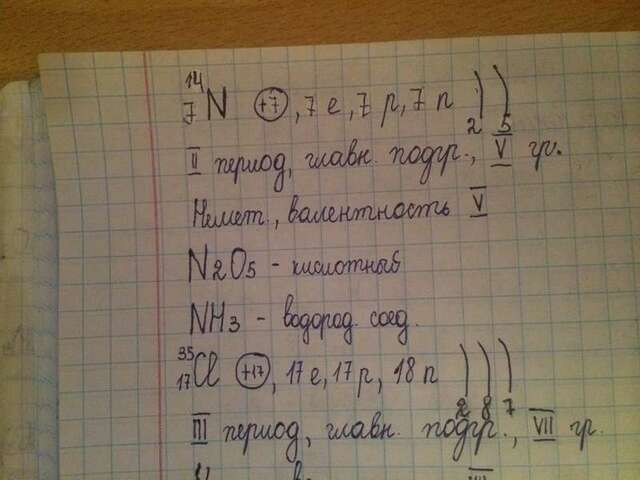 14 7 N +7, 7 e, 7 p, 7 n ) ) 2 5
II период, главн. подгр., V гр.
Немет., валентность V
N2O5 - кислотный
NH3 - водород. соед.
35 17 Cl +17, 17 e, 17 p, 18 n ) ) ) 2 8 7
III период, главн. подгр., VII гр.